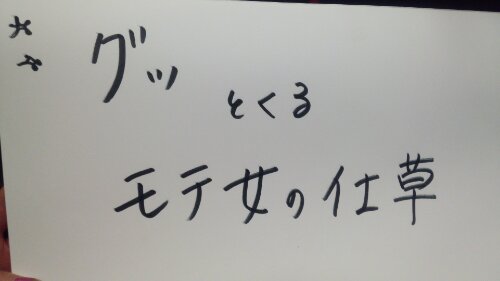 グッ
とくる
モテ女の仕草